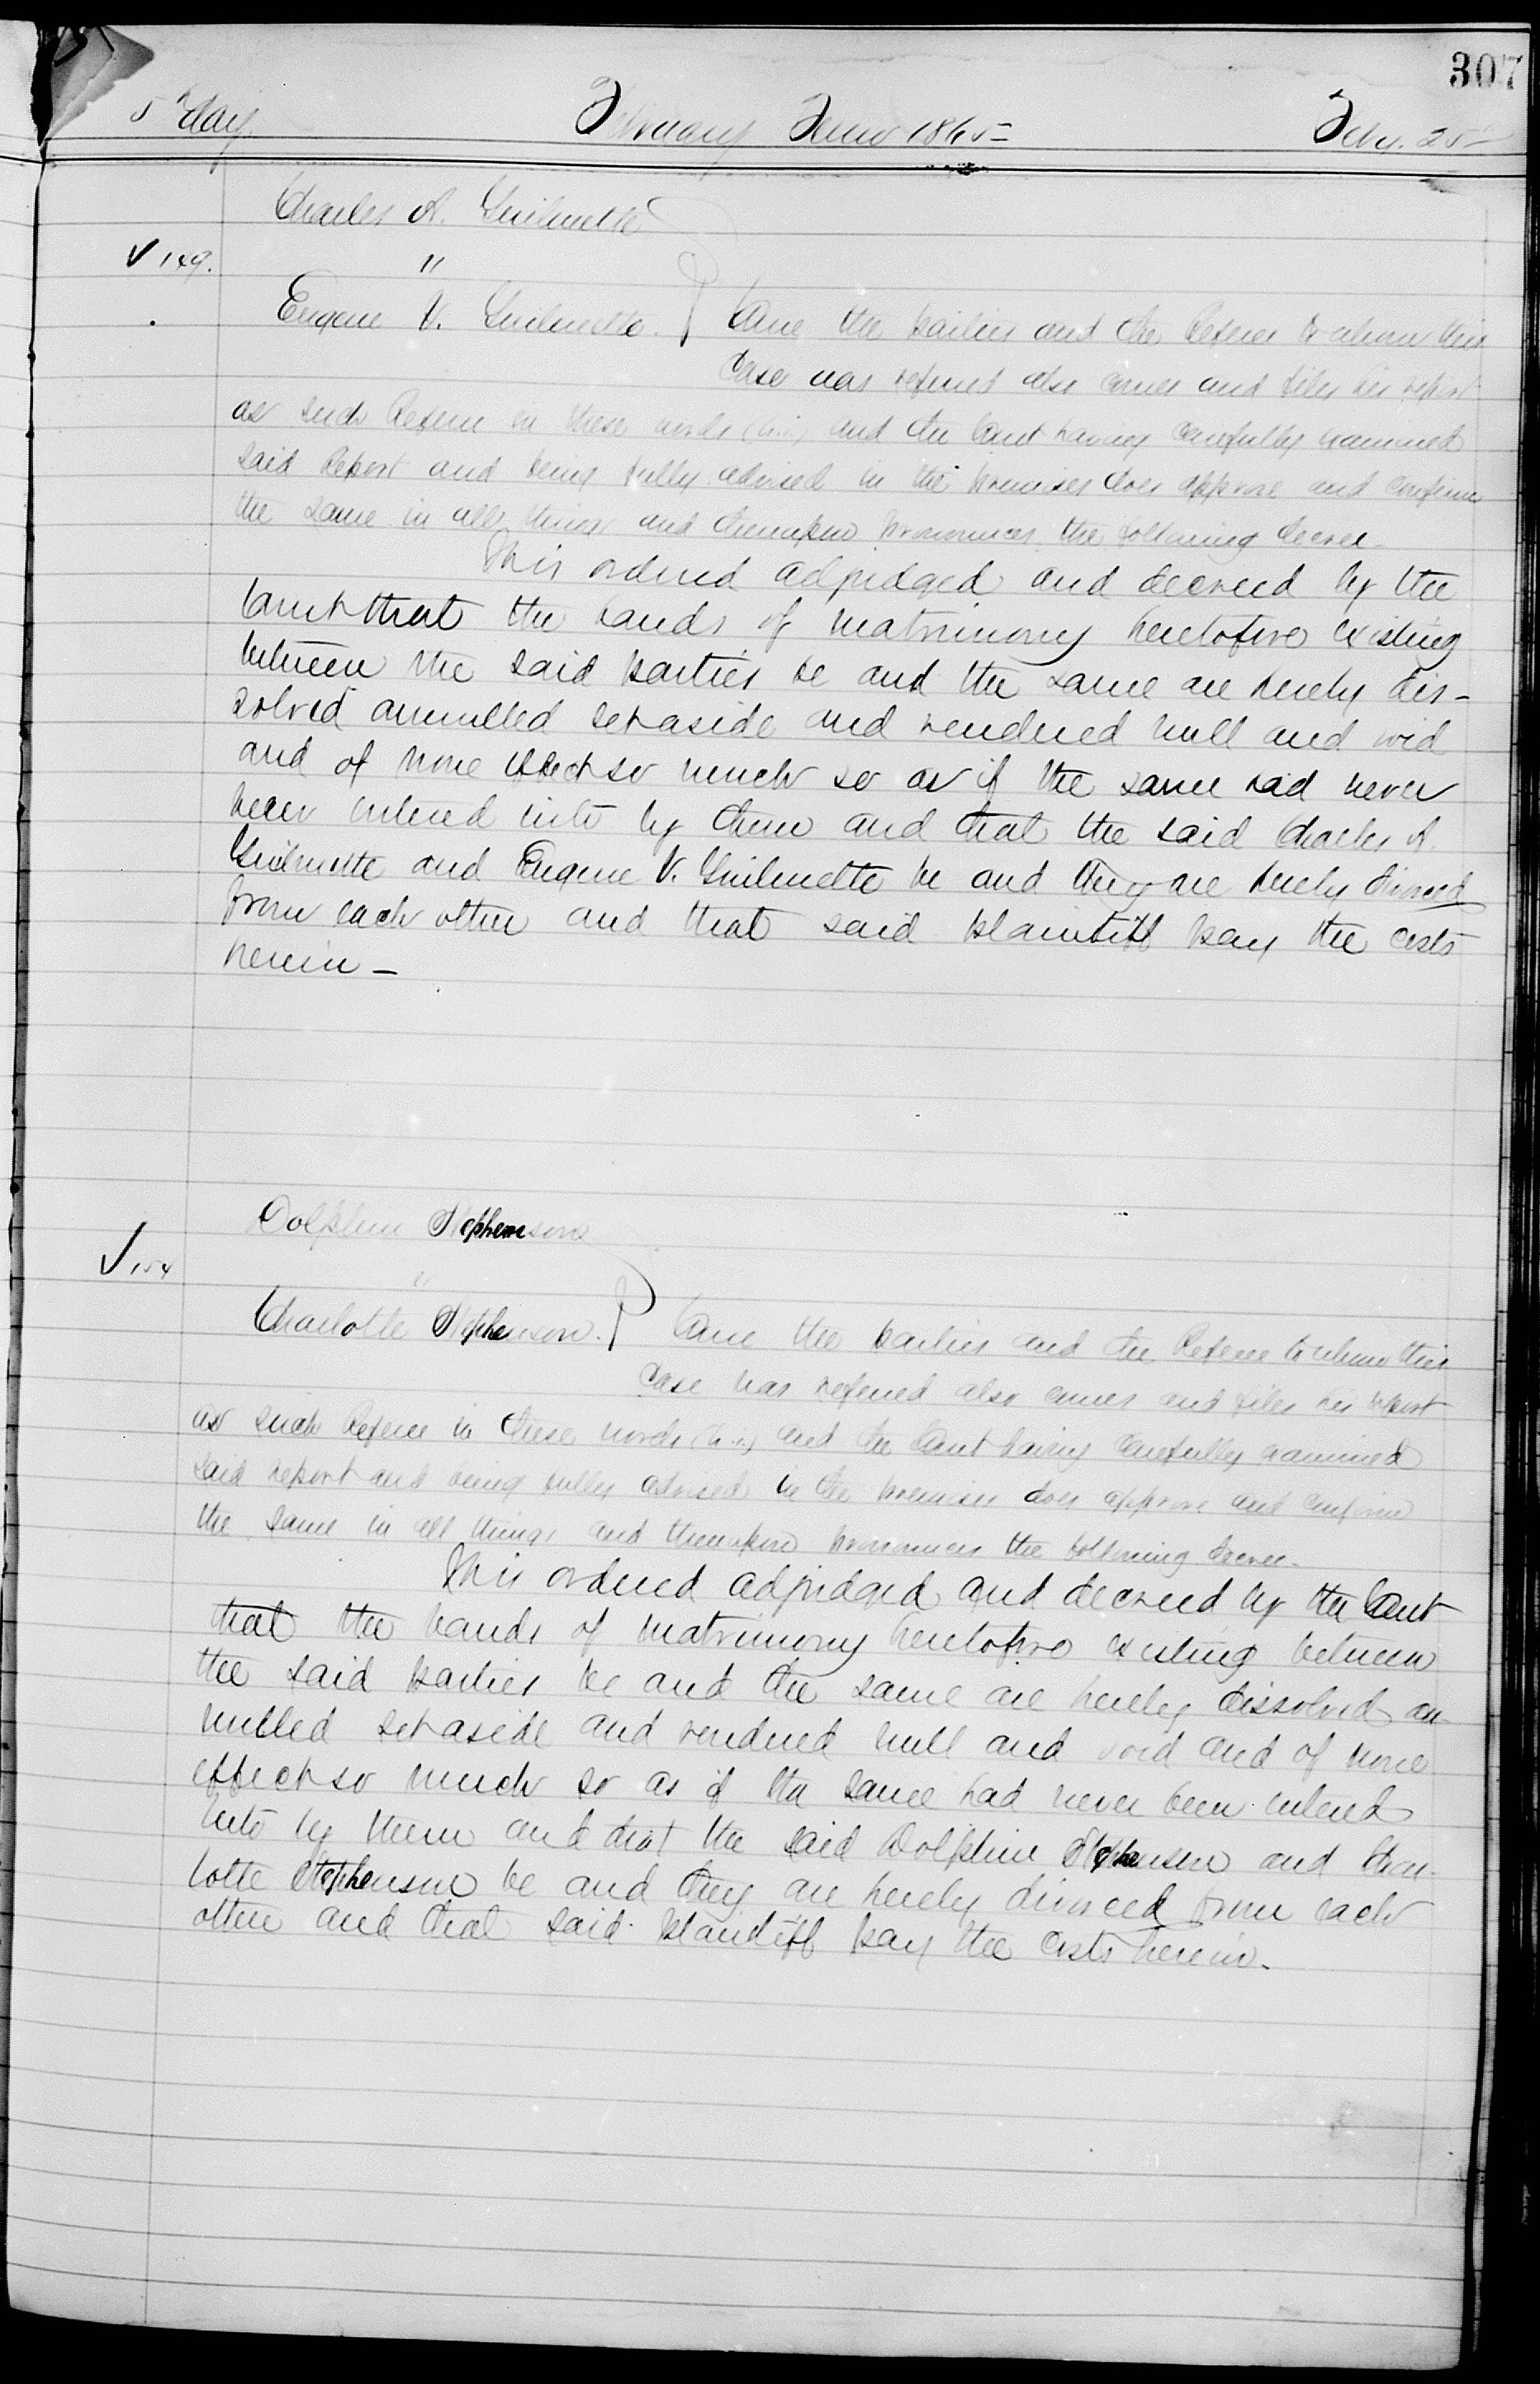 307
5th day February Term 1865 Feby. 25th
Charles A. Guilmette
✓ 149. "
Eugene V. Guilmette. } Came the parties and the Referee to whom this
case was referred also comes and files his report
as such Referee in these words (h.i.) and the Court having carefully examined
said Report and being fully advised in the premises does approve and confirm
the same in all things and thereupon pronounces the following decree.
This ordered adjudged and decreed by the
Court that the bands of matrimony heretofore existing
between the said parties be and the same are hereby dis-
solved annulled set aside and rendered null and void
and of none effect so much so as if the same had never
been entered into by them and that the said Charles A.
Guilmette and Eugene V. Guilmette be and they are hereby divorced
from each other and that said plaintiff pay the costs
herein –
Dolphin Stephenson
✓ 154 "
Charlotte Stephenson. } Came the parties and the Referee to whom this
case was referred also comes and files his report
as such Referee in these words (h.i.) and the Court having carefully examined
said report and being fully advised in the premises does approve and confirm
the same in all things and thereupon pronounces the following decree.
This ordered adjudged and decreed by the Court
that the bands of matrimony heretofore existing between
the said parties be and the same are hereby dissolved an
nulled set aside and rendered null and void and of none
effect so much so as if the same had never been entered
into by them and that the said Dolphin Stephenson and Char-
lotte Stephenson be and they are hereby divorced from each
other and that said plaintiff pay the costs herein.